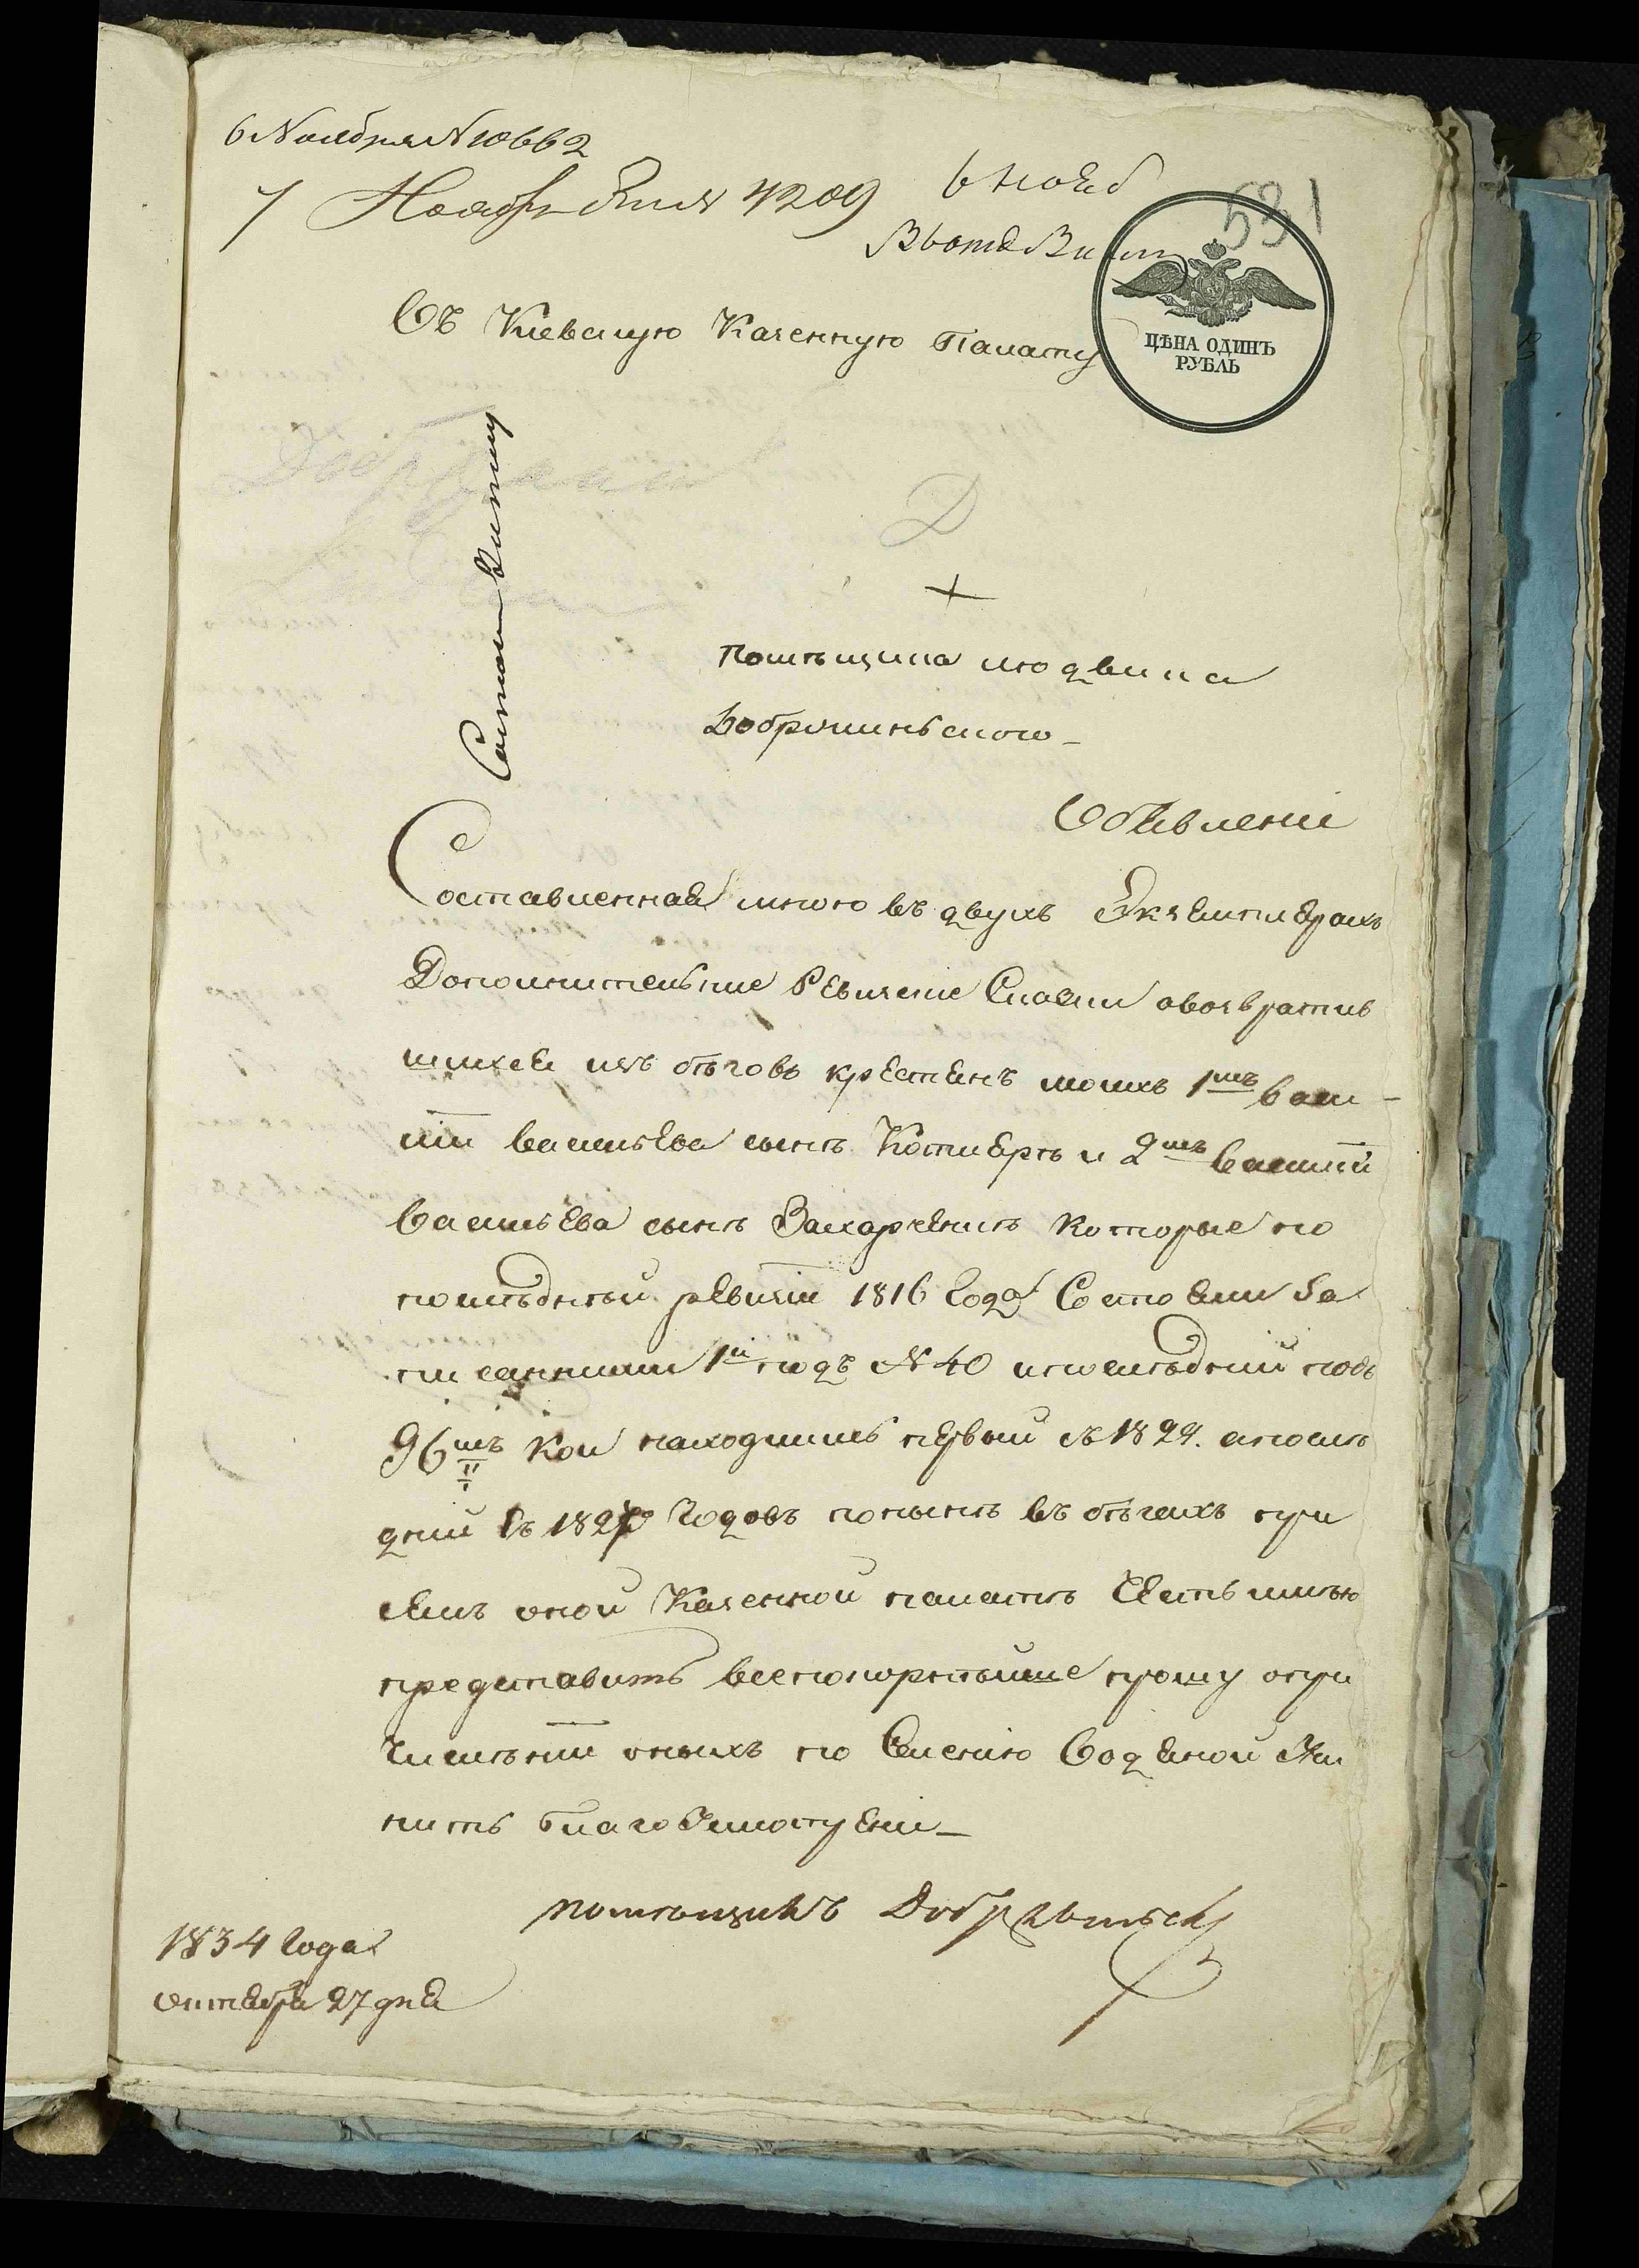 6 Ноября N 10662
7 Ноября 4209
6 Нояб
531
ЦѢНА ОДИНЪ
РУБЛЬ
Въ Кіевскую Казенную Палату
Д
Помѣщика Людвика
Добржиньского
Объявленіе
Составленная мною въ двухъ Экземплярахъ
Дополнительніе Ревизскіе Сказки овозвратив
шихся изъ бѣговъ крестянъ моихъ 1мъ Васи-
лій Васильева сынъ Котлярь и 2мъ Василій
Васильева сынъ Захарченкъ которые по
послѣдней ревизіи 1816 Года Состояли За
писанними 1й подъ N 40 ипослѣдній подъ
96мъ Кои находились первый съ 1829. апослѣ
дній Съ 182 Годовъ понынѣ въ бѣгахъ при
семъ оной Казенной палатѣ Честь имѣю
представить всепокорнѣйше прошу опри
Численіи оныхъ по Селенію Водяной Учи
нить благоусмотреніе
помѣщикъ Добржиньск
1834 Года
октября 27 дня